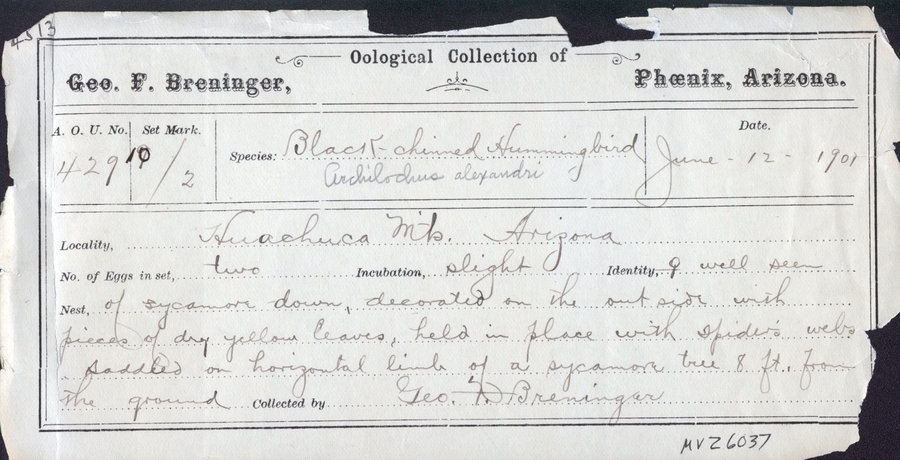 4513
Oological Collection of
Geo. F. Breninger, Phœnix, Arizona.
A. O. U. No. Set Mark. Date.
429 10/2 Species: Black-chinned Hummingbird June - 12 - 1901
Archilochus alexandri
Locality, Huachuca Mts. Arizona
No. of Eggs in set, two Incubation, slight Identity, ♀ well seen
Nest, of sycamore down, decorated on the outside with
pieces of dry yellow leaves, held in place with spiders webs
saddled on horizontal limb of a sycamore tree 8 ft. from
the ground Collected by Geo. F. Breninger
MVZ6037